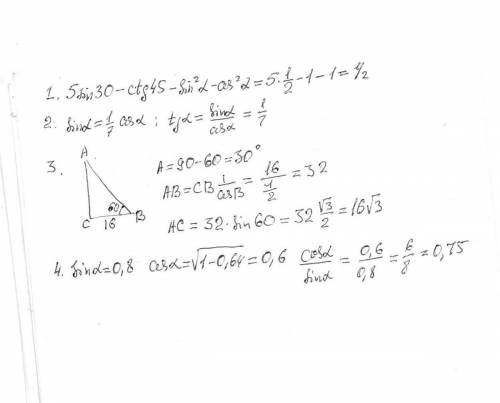 1. 5sin30 - ctg45 - sin²α - cos²α = 5·1/2 - 1 - 1 = 1/2
2. sinα = 1/7 cosα ; tgα = sinα/cosα = 1/7
3. A
A = 90 - 60 = 30°
AB = CB 1/cosB = 16/(1/2) = 32
60
C 16 B
AC = 32 · sin60 = 32 √3/2 = 16√3
4. sinα = 0,8 cosα = √(1-0,64) = 0,6 cosα/sinα = 0,6/0,8 = 6/8 = 0,75